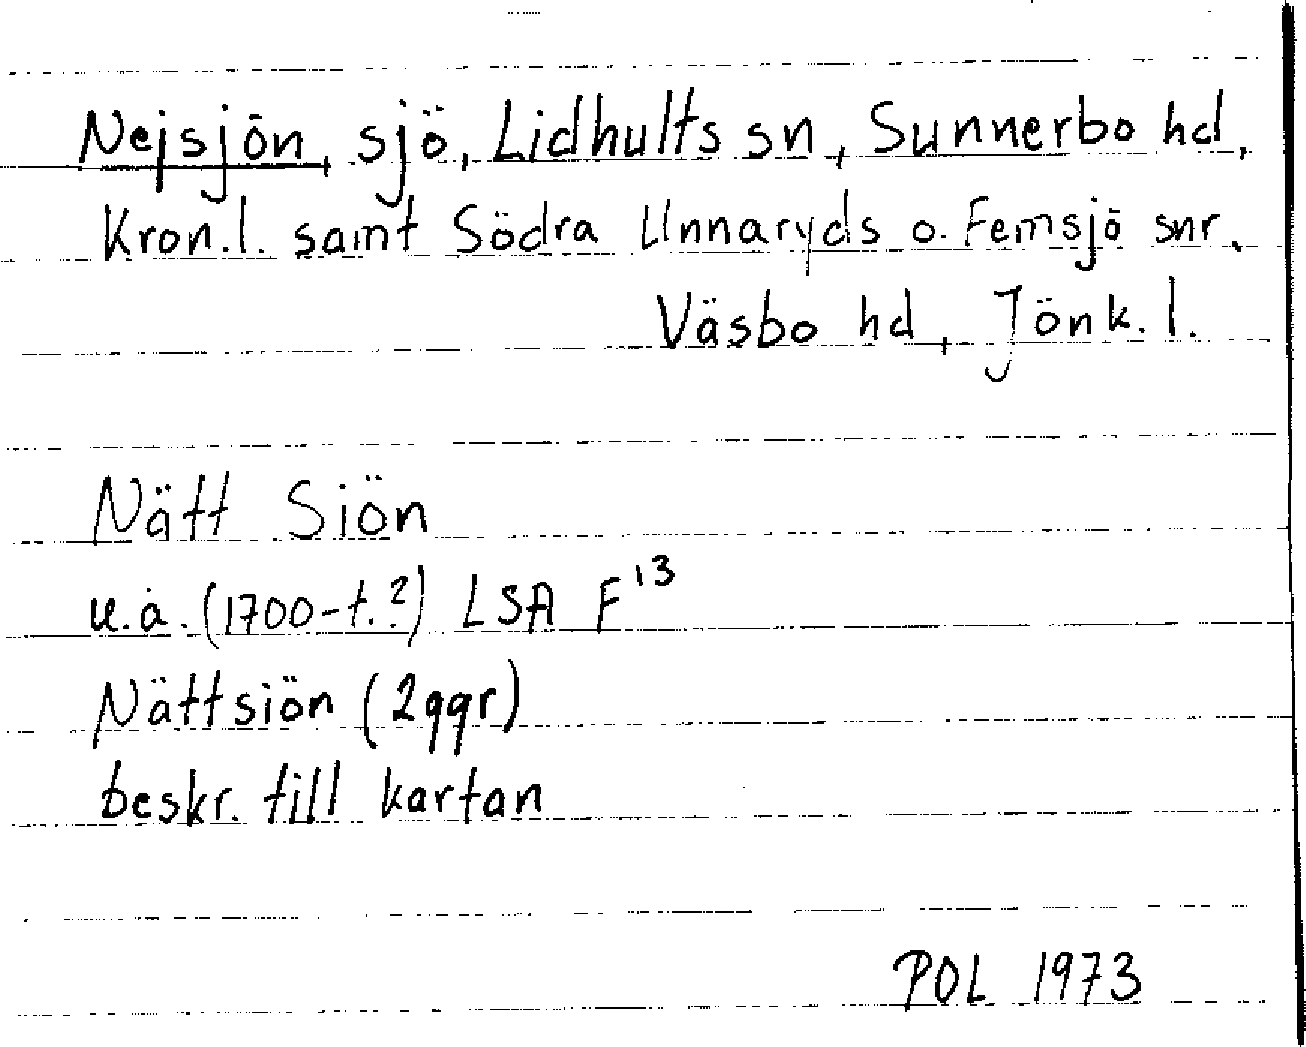 Nejsjön, sjö, Lidhults sn, Sunnerbo hd,
Kron.l. samt Södra Unnaryds o. Femsjö snr,
Väsbo hd, Jönk. l.
Nätt Siön
u.å. (1700-t.?) LSA F13
Nättsiön (2ggr)
beskr. till kartan
POL 1973